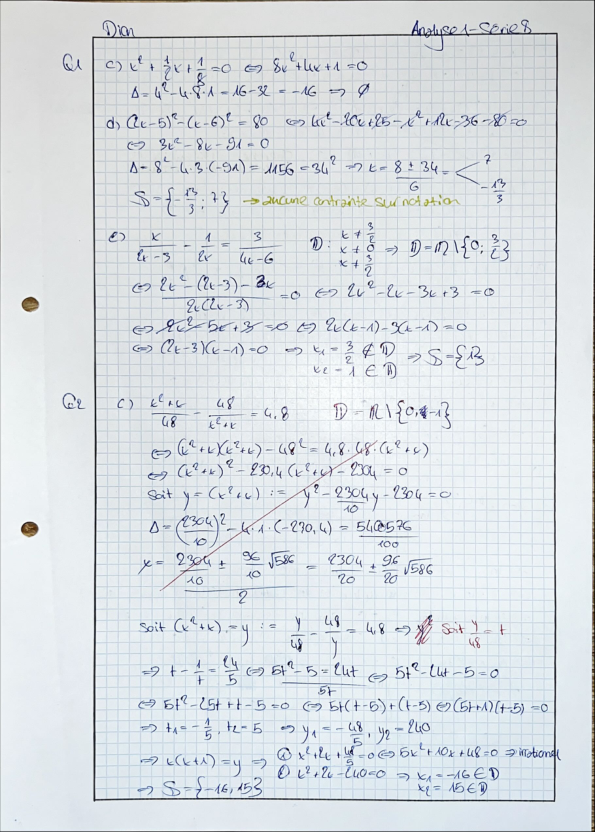 Dian Analyse 1 - Série 8
Q1 c) x² + 1/2 x + 1/8 = 0 ⇔ 8x² + 4x + 1 = 0
Δ = 4² - 4·8·1 = 16 - 32 = -16 ⇒ ∅
d) (2x-5)² - (x-6)² = 80 ⇔ 4x² - 20x + 25 - x² + 12x - 36 - 80 = 0
⇔ 3x² - 8x - 91 = 0
Δ = 8² - 4·3·(-91) = 1156 = 34² ⇒ x = (8 ± 34)/6 < 7
-13/3
S = {-13/3 ; 7} → aucune contrainte sur notation
e) x/(2x-3) - 1/2x = 3/(4x-6) D: x ≠ 3/2
x ≠ 0 ⇒ D = ℝ \ {0; 3/2}
x ≠ 3/2
⇔ (2x² - (2x-3) - 3x)/(2x(2x-3)) = 0 ⇔ 2x² - 2x - 3x + 3 = 0
⇔ 2x² - 5x + 3 = 0 ⇔ 2x(x-1) - 3(x-1) = 0
⇔ (2x-3)(x-1) = 0 ⇒ x₁ = 3/2 ∉ D ⇒ S = {1}
x₂ = 1 ∈ D
Q2 c) (x²+x)/48 - 48/(x²+x) = 4,8 D = ℝ \ {0, -1}
⇔ (x²+x)(x²+x) - 48² = 4,8·48·(x²+x)
⇔ (x²+x)² - 230,4(x²+x) - 2304 = 0
Soit y = (x²+x) := y² - 2304/10 y - 2304 = 0
Δ = (2304/10)² - 4·1·(-230,4) = 5400576/100
x = (2304/10 ± 96/10 √586)/2 = 2304/20 ± 96/20 √586
Soit (x²+x) = y := y/48 - 48/y = 4,8 ⇒ Soit y/48 = t
⇒ t - 1/t = 24/5 ⇔ (5t² - 5 = 24t)/5t ⇔ 5t² - 24t - 5 = 0
⇔ 5t² - 25t + t - 5 = 0 ⇔ 5t(t-5) + (t-5) ⇔ (5t+1)(t-5) = 0
⇒ t₁ = -1/5, t₂ = 5 ⇒ y₁ = -48/5, y₂ = 240
⇒ x(x+1) = y ⇒ ① x² + 2x + 48/5 = 0 ⇔ 5x² + 10x + 48 = 0 ⇒ irrationnel
② x² + 2x - 240 = 0 ⇒ x₁ = -16 ∈ D
⇒ S = {-16, 15} x₂ = 15 ∈ D